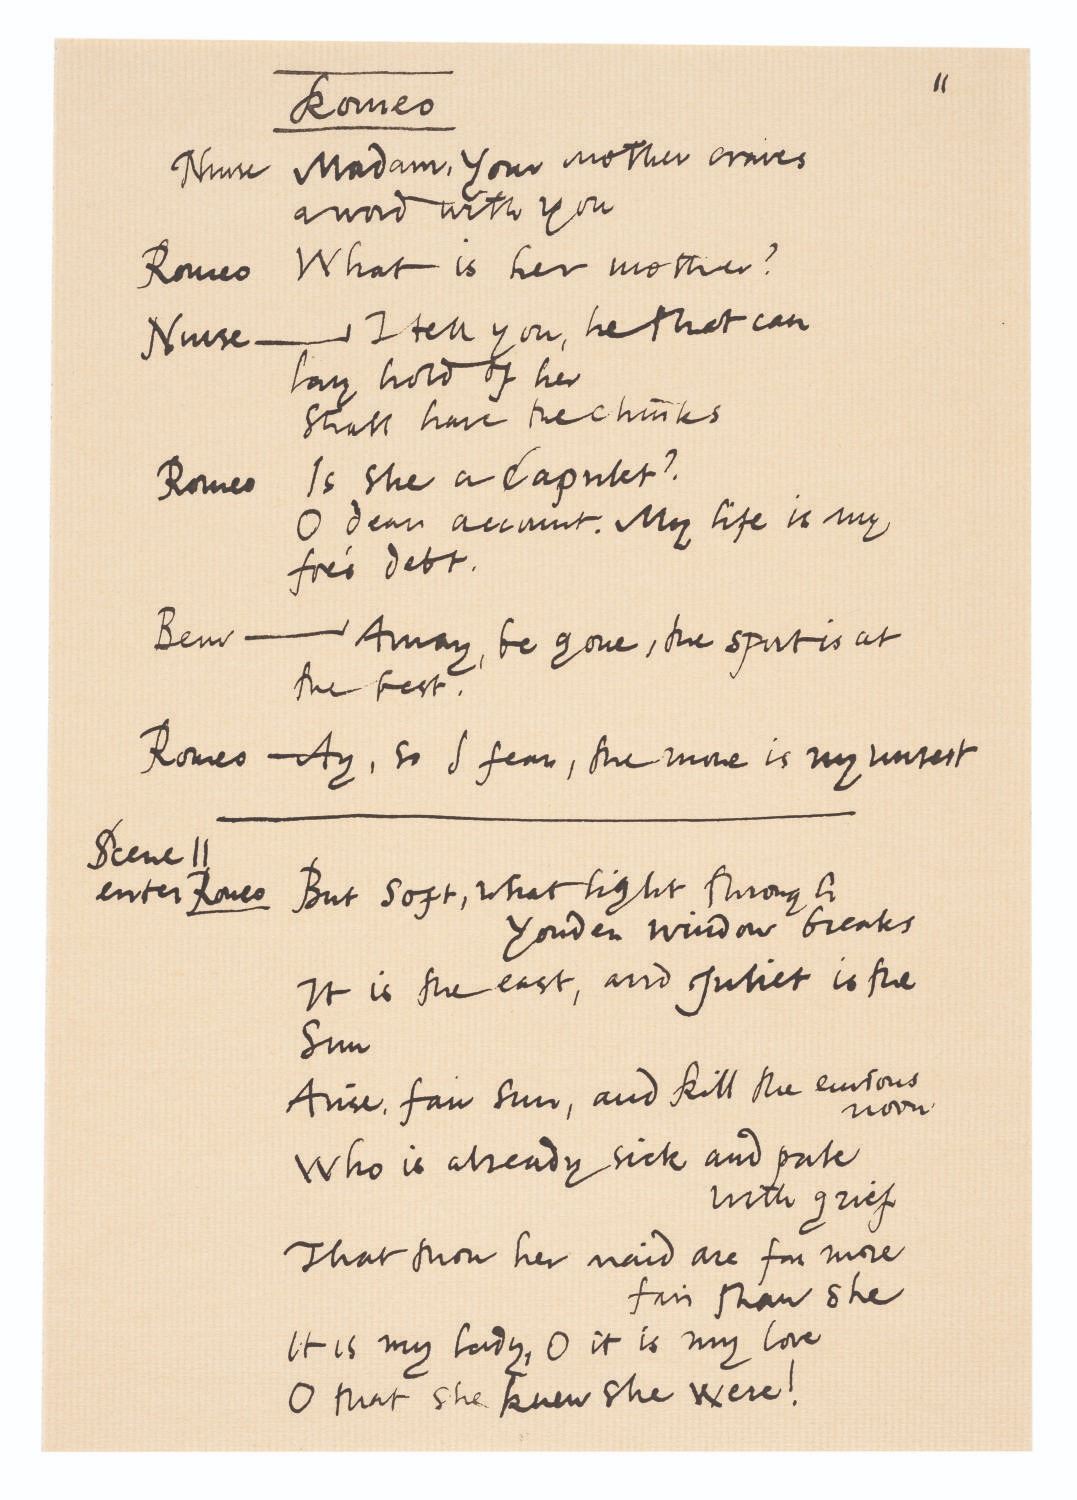 Romeo
11
Nurse Madam, Your mother craves
a word with you
Romeo What is her mother?
Nurse — I tell you, he that can
lay hold of her
Shall have the chinks
Romeo Is she a Capulet?
O dear account. My life is my
foe's debt.
Benv — Away, be gone, the sport is at
the best.
Romeo — Ay, so I fear, the more is my unrest
Scene II
enter Romeo But soft, what light through
Yonder window breaks
It is the east, and Juliet is the
Sun
Arise, fair Sun, and kill the envious
moon
Who is already sick and pale
with grief
That thou her maid are far more
fair than she
It is my lady, O it is my love
O that she knew she were!